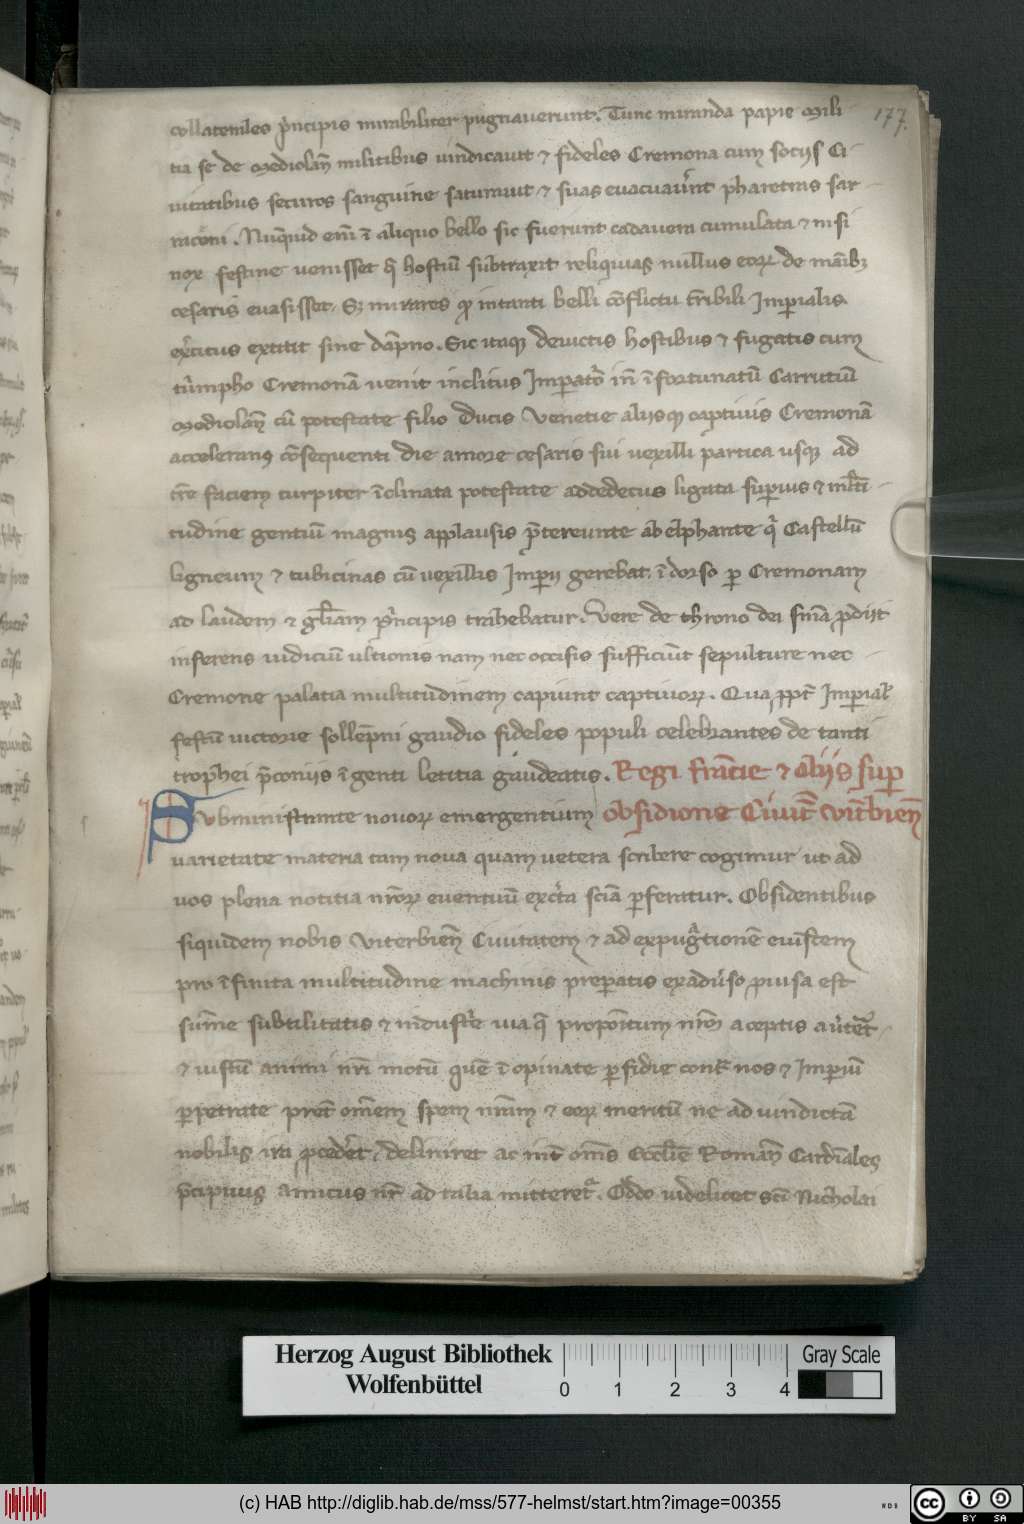 collaterales p̄ncipis mirabiliter pugnauerunt. Tunc miranda papie mili
177.
tia se de mediolan̄ militibus uindicauit ⁊ fideles Cremona cum socijs Ci-
uitatibus securos sanguine saturauit ⁊ suas euacuauer̄nt pharetras sar-
raceni. Nunquid em̄ ī aliquo bello sic fuerunt cadauera cumulata ⁊ nisi
nox festine uenisset q̄ hostiū subtraxit reliquias nullus eoꝝ de manibꝫ
cesaris euasisset. Sꝫ mirares qꝫ in tanti belli cōflictu tribili Imperialis
exercitus extitit sine dāpno. Sic itaqꝫ deuictis hostibus ⁊ fugatis cum
triumpho Cremonā uenit inclitus Imperator in̄ īfortunatū Carrutiū
mediolan̄ cū potestate filio Ducis Venetie alijsqꝫ captiuis Cremonā
accelerans cōsequenti die amore cesaris sui uexilli partica usqꝫ ad
terre faciem turpiter īclinata potestate addedecus ligata superius ⁊ multi-
tudine gentiū magnis applausis p̄tereunte ab elphante qui Castellū
ligneum ⁊ tubicinas cū uexillis Imperij gerebat ī dorso per Cremonam
ad laudem ⁊ gl̄iam p̄ncipis trahebatur. Vere de throno dei snīa ꝓdijt
inferens iudiciū ultionis nam nec occisis sufficiūt sepulture nec
Cremone palatia multitudinem capiunt captiuoꝝ. Qua ꝓpt̄ Imperial̄
festū uictorie sollēpni gaudio fideles populi celebrantes de tanti
trophei p̄conijs ī genti letitia gaudeatis. Regi francie ⁊ alijs super
Subministrante nouoꝝ emergentium obsidione Ciuit̄ vit̄bien̄
varietate materia tam noua quam uetera scribere cogimur ut ad
uos plena notitia nr̄oꝝ euentuū excerta sciā perferatur. Obsidentibus
siquidem nobis Viterbien̄ Ciuitatem ⁊ ad expugnationē eiusdem
pro īfinita multitudine machinis preparatis exaduerso ꝓuisa est
sum̄e subtilitatis ⁊ industrie uia q̄ propoītum nr̄m
⁊ iustū animi nr̄i motū quē ī opinate perfidie contra nos ⁊ Imperiū
perpetrate pret̄ omēm spem nr̄am ⁊ eoꝝ meritū ne ad uindictā
nobilis ira ꝓcederet deliniret ac int̄ om̄s Eccl̄ie Roman̄ Cardinales
p̄cipuus amicus nr̄ ad talia mitteret̄. Oddo uidelicet sc̄i Nicholai
Herzog August Bibliothek
Wolfenbüttel
0 1 2 3 4
Gray Scale
(c) HAB http://diglib.hab.de/mss/577-helmst/start.htm?image=00355
WDB
cc BY SA